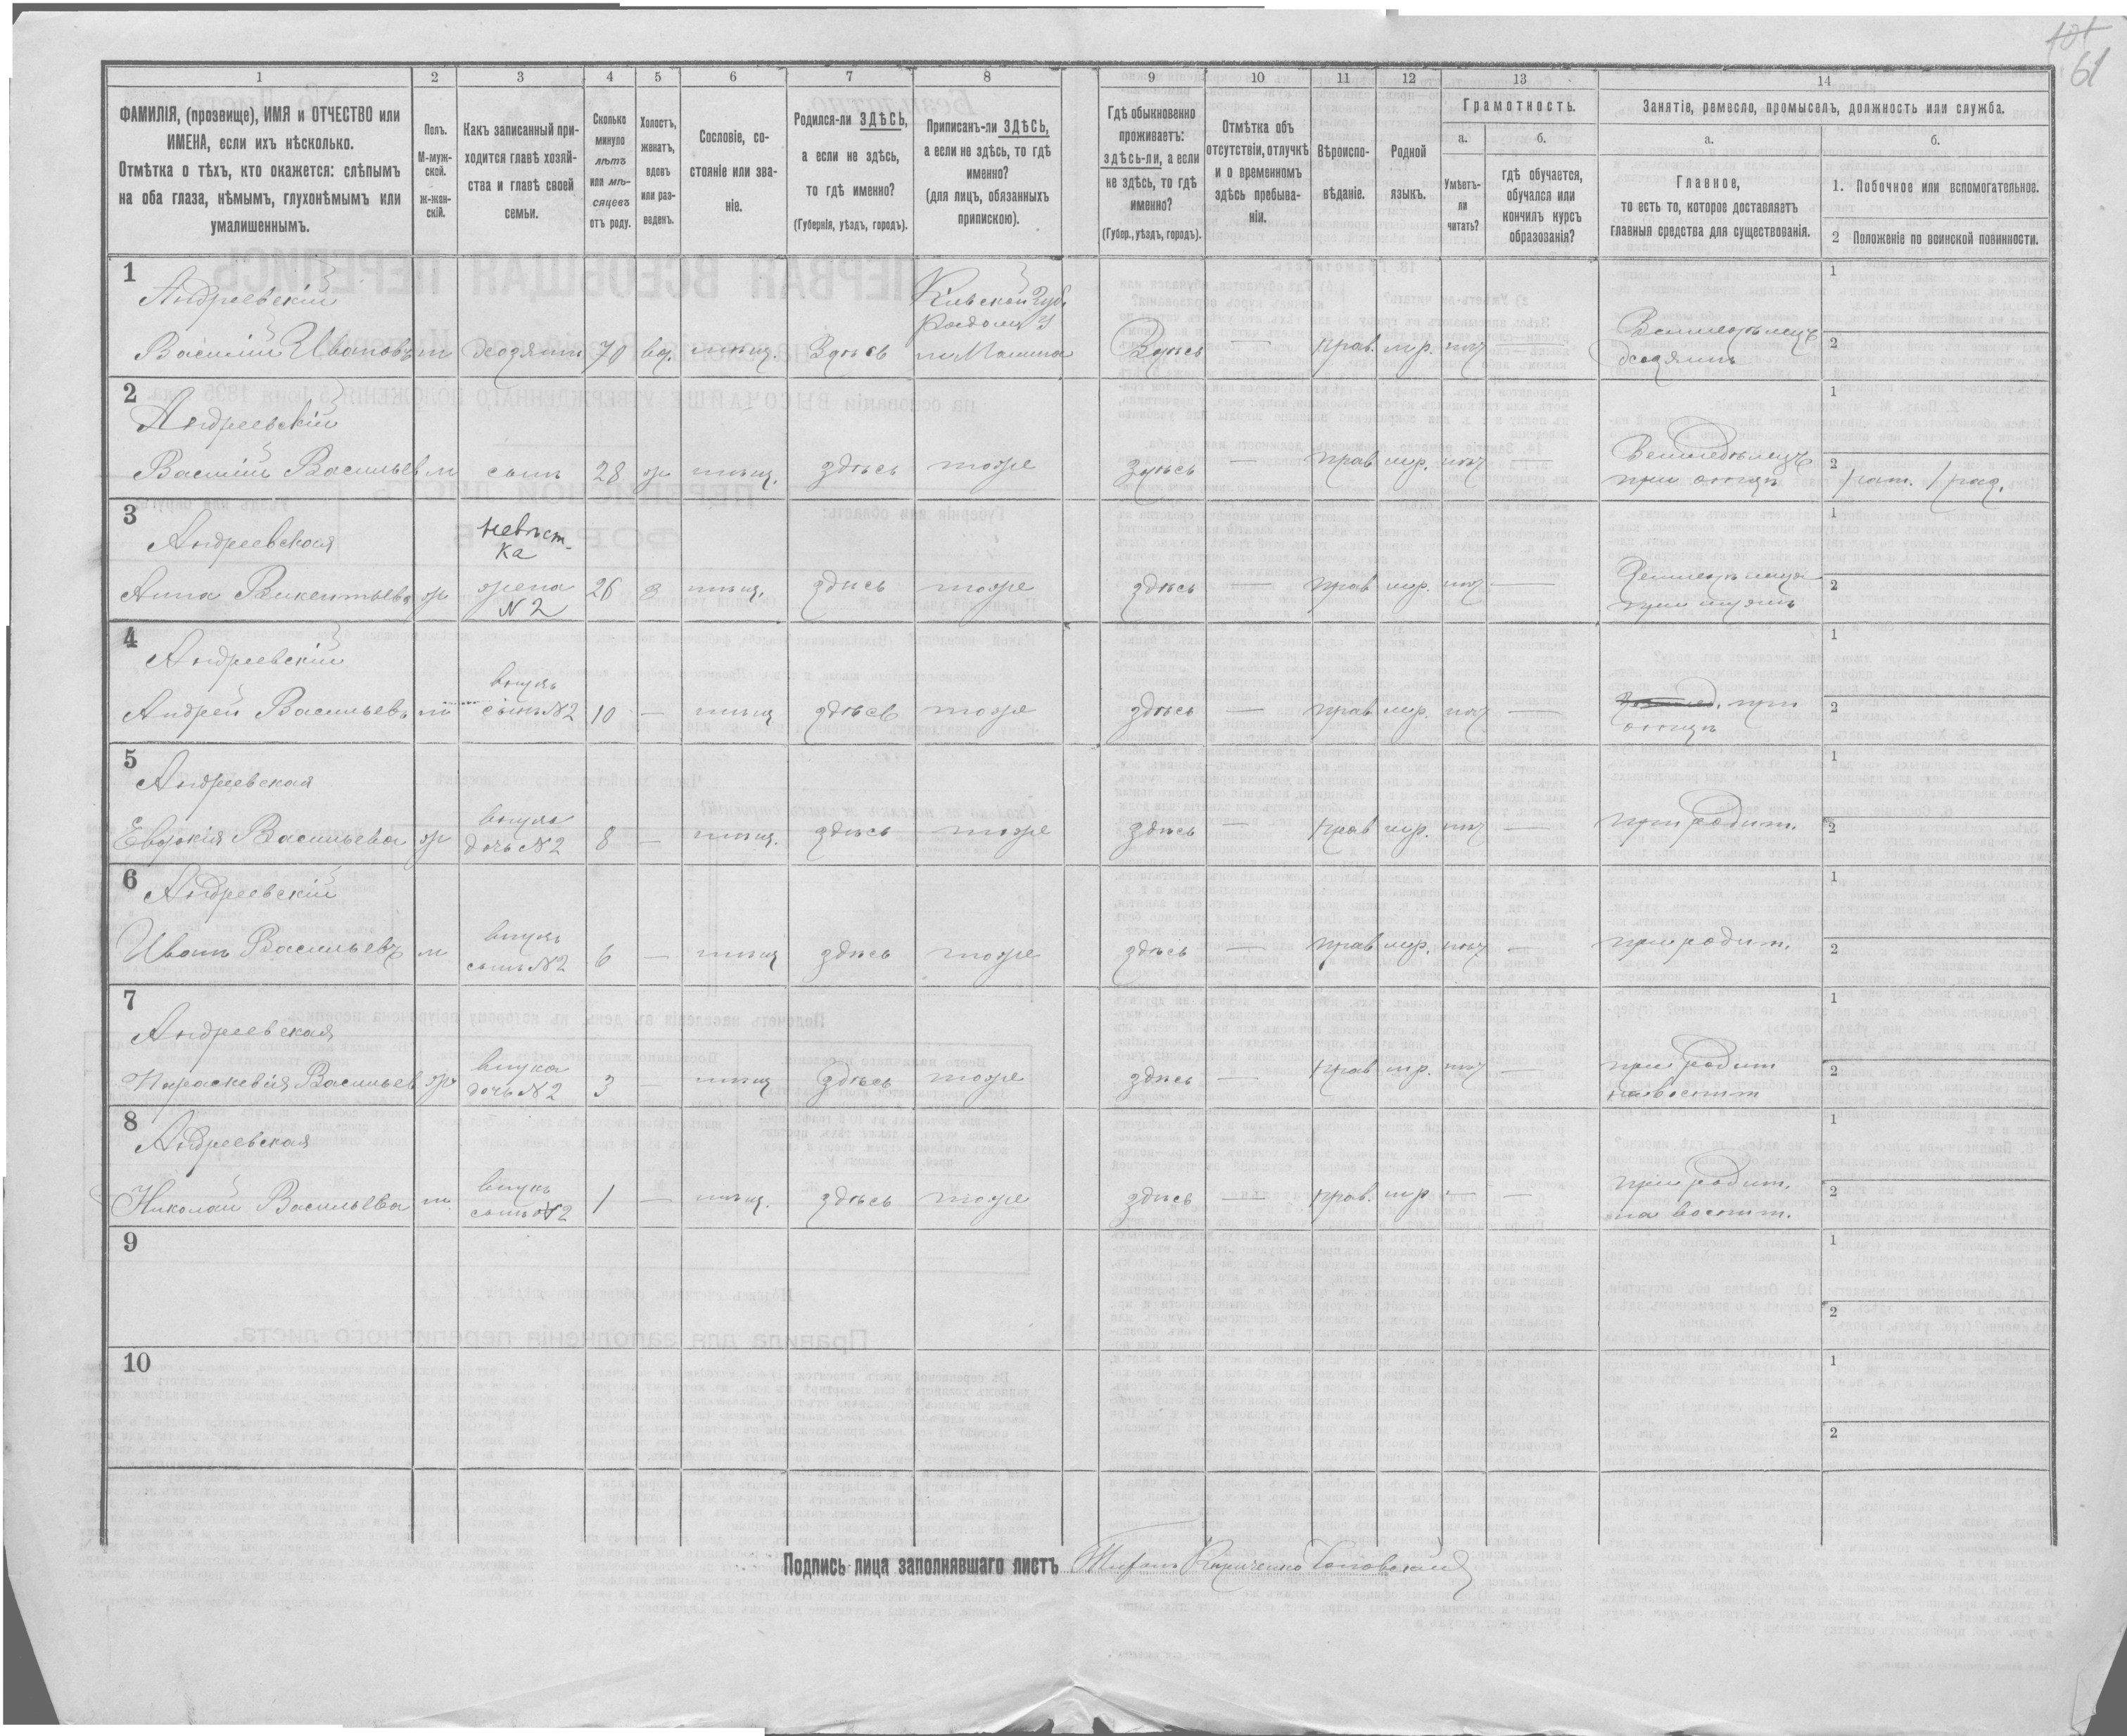 61
1 2 3 4 5 6 7 8 9 10 11 12 13 14
ФАМИЛІЯ, (прозвище), ИМЯ и ОТЧЕСТВО или
ИМЕНА, если ихъ нѣсколько.
Отмѣтка о тѣхъ, кто окажется: слѣпымъ
на оба глаза, нѣмымъ, глухонѣмымъ или
умалишеннымъ.
Полъ.
М-муж-
ской.
ж-жен-
скій.
Какъ записанный при-
ходится главѣ хозяй-
ства и главѣ своей
семьи.
Сколько
минуло
лѣтъ
или мѣ-
сяцевъ
отъ роду.
Холостъ,
женатъ,
вдовъ
или раз-
веденъ.
Сословіе, со-
стояніе или зва-
ніе.
Родился-ли ЗДѢСЬ,
а если не здѣсь,
то гдѣ именно?
(Губернія, уѣздъ, городъ).
Приписанъ-ли ЗДѢСЬ,
а если не здѣсь, то гдѣ
именно?
(для лицъ, обязанныхъ
припискою).
Гдѣ обыкновенно
проживаетъ:
здѣсь-ли, а если
не здѣсь, то гдѣ
именно?
(Губер., уѣздъ, городъ).
Отмѣтка объ
отсутствіи, отлучкѣ
и о временномъ
здѣсь пребыва-
ніи.
Вѣроиспо-
вѣданіе.
Родной
языкъ.
Грамотность.
а. б.
Умѣетъ-
ли
читать?
гдѣ обучается,
обучался или
кончилъ курсъ
образованія?
Занятіе, ремесло, промыселъ, должность или служба.
а. б.
Главное,
то есть то, которое доставляетъ
главныя средства для существованія.
1. Побочное или вспомогательное.
2 Положеніе по воинской повинности.
1
Андреевскій Кіевской Губ.
Василій Ивановъ м хозяинъ 70 вд. мѣщ. Здѣсь Здѣсь — прав. мр. нѣт —
Земледѣлецъ
хозяинъ
1
2
2
Андреевскій
Василій Васильев м сынъ 28 ж мѣщ. здѣсь тоже здѣсь — прав мр. нѣт —
Земледѣлецъ
при отцѣ
1
2
3
Андреевская
невѣст-
ка
Анна Викентьева ж жена 26 з мѣщ. здѣсь тоже здѣсь — прав мр. нѣт —
N 2
при мужѣ
1
2
4
Андреевскій
внукъ
Андрей Васильевъ м сынъ N2 10 — мѣщ здѣсь тоже здѣсь — прав мр. нѣт — при
отцѣ
1
2
5
Андреевская
внука
Евдокія Васильева ж дочь N2 8 — мѣщ. здѣсь тоже здѣсь — прав мр. нѣт — при родит.
1
2
6
Андреевскій
внукъ
Иванъ Васильевъ м сынъ N2 6 — мѣщ здѣсь тоже здѣсь — прав мр. нѣт — при родит.
1
2
7
Андреевская
внука
Параскевія Васильев ж дочь N2 3 — мѣщ здѣсь тоже здѣсь — прав мр. нѣт — при родит
на воспит
1
2
8
Андреевская
внукъ
Николай Васильева м. сынъ N2 1 — мѣщ. здѣсь тоже здѣсь — прав. мр — — при родит.
на воспит.
1
2
9
1
2
10
1
2
Подпись лица заполнявшаго листъ